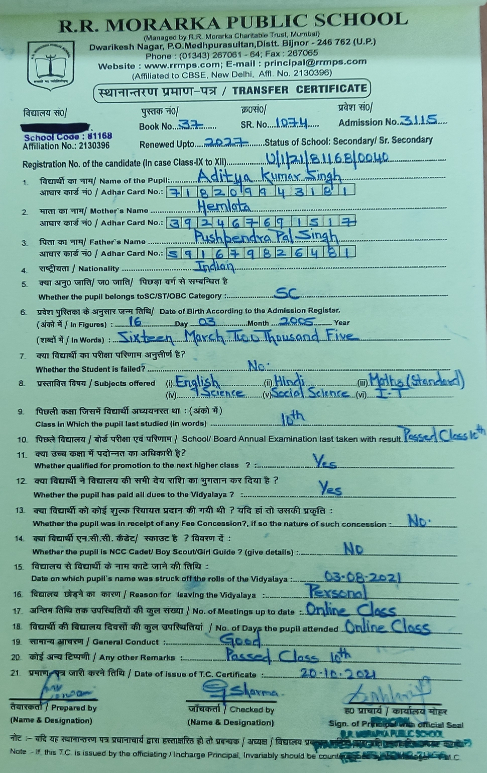 R.R. MORARKA PUBLIC SCHOOL
(Managed by R.R. Morarka Charitable Trust, Mumbai)
Dwarikesh Nagar, P.O.Medhpurasultan,Distt. Bijnor - 246 762 (U.P.)
Phone : (01343) 267061 - 64; Fax : 267065
Website : www.rrmps.com; E-mail : principal@rrmps.com
(Affiliated to CBSE, New Delhi, Affl. No. 2130396)
स्थानान्तरण प्रमाण-पत्र / TRANSFER CERTIFICATE
विद्यालय सं०/ पुस्तक नं०/ क्र०सं०/ प्रवेश सं०/
Book No. 37 SR. No. 1074 Admission No. 3115
School Code : 81168
Affiliation No. : 2130396 Renewed Upto 2027 Status of School: Secondary/ Sr. Secondary
Registration No. of the candidate (in case Class-IX to XII) U/1/21/81168/0040
1. विद्यार्थी का नाम/ Name of the Pupil: Aditya Kumar Singh
आधार कार्ड नं०/ Adhar Card No.: 718209943181
2. माता का नाम/ Mother's Name Hemlata
आधार कार्ड नं०/ Adhar Card No.: 392467691517
3. पिता का नाम/ Father's Name Pushpendra Pal Singh
आधार कार्ड नं०/ Adhar Card No.: 591679826481
4. राष्ट्रीयता / Nationality Indian
5. क्या अनु० जाति/ ज० जाति/ पिछड़ा वर्ग से सम्बन्धित है?
Whether the pupil belongs toSC/ST/OBC Category : SC
6. प्रवेश पुस्तिका के अनुसार जन्म तिथि/ Date of Birth According to the Admission Register.
(अंको में / In Figures : 16 Day 03 Month 2005 Year
(शब्दों में / In Words) : Sixteen March Two Thousand Five
7. क्या विद्यार्थी का परीक्षा परिणाम अनुत्तीर्ण है?
Whether the Student is failed? No.
8. प्रस्तावित विषय / Subjects offered (i) English (ii) Hindi (iii) Maths (Standard)
(iv) Science (v) Social Science (vi) I.T
9. पिछली कक्षा जिसमें विद्यार्थी अध्ययनरत था : (अंको में)
Class in Which the pupil last studied (in words) 10th
10. पिछले विद्यालय / बोर्ड परीक्षा एवं परिणाम / School/ Board Annual Examination last taken with result Passed Class 10th
11. क्या उच्च कक्षा में पदोन्नत का अधिकारी है?
Whether qualified for promotion to the next higher class ? : Yes
12. क्या विद्यार्थी ने विद्यालय की सभी देय राशि का भुगतान कर दिया है ?
Whether the pupil has paid all dues to the Vidyalaya ? : Yes
13. क्या विद्यार्थी को कोई शुल्क रियायत प्रदान की गयी थी ? यदि हां तो उसकी प्रकृति :
Whether the pupil was in receipt of any Fee Concession?, if so the nature of such concession : No.
14. क्या विद्यार्थी एन.सी.सी. कैडेट/ स्काउट है ? विवरण दें :
Whether the pupil is NCC Cadet/ Boy Scout/Girl Guide ? (give details) : No
15. विद्यालय से विद्यार्थी के नाम काटे जाने की तिथि :
Date on which pupil's name was struck off the rolls of the Vidyalaya : 03-08-2021
16. विद्यालय छोड़ने का कारण / Reason for leaving the Vidyalaya : Personal
17. अन्तिम तिथि तक उपस्थितियों की कुल संख्या / No. of Meetings up to date : Online Class
18. विद्यार्थी की विद्यालय दिवसों की कुल उपस्थितियां / No. of Days the pupil attended Online Class
19. सामान्य आचरण / General Conduct : Good
20. कोई अन्य टिप्पणी / Any other Remarks : Passed Class 10th
21. प्रमाण पत्र जारी करने तिथि / Date of issue of T.C. Certificate : 20-10-2021
तैयारकर्ता / Prepared by जाँचकर्ता / Checked by ह० प्राचार्य / कार्यालय मोहर
(Name & Designation) (Name & Designation) Sign. of Principal with official Seal
R.R. MORARKA PUBLIC SCHOOL
नोट :- यदि यह स्थानान्तरण पत्र प्रधानाचार्य द्वारा हस्ताक्षरित हो तो प्रबन्धक / अध्यक्ष / विद्यालय
Note :- If, this T.C. is issued by the officiating / Incharge Principal, Invariably should be